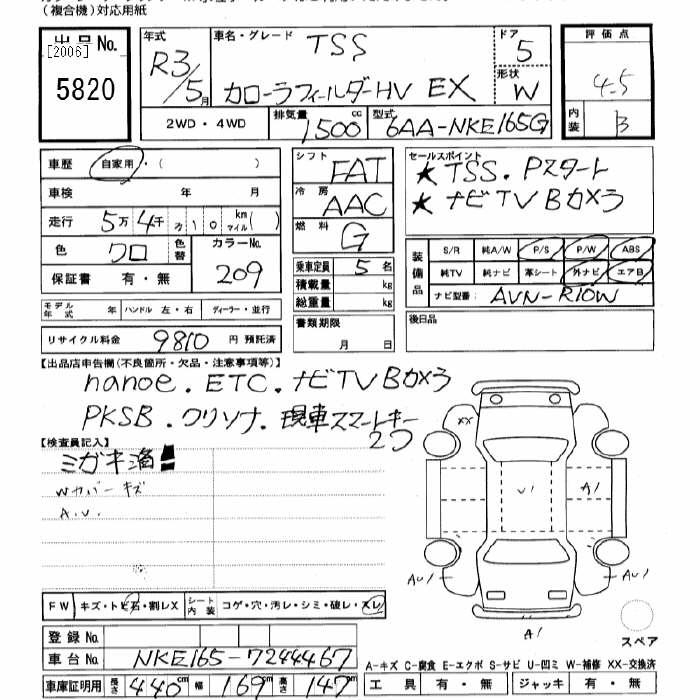 （複合機）対応用紙
出品 No.
[2006]
5820
年式 R3/5月
車名・グレード TSS
カローラフィールダーHV EX
ドア 5
形状 W
2WD・4WD
排気量 1500cc
型式 6AA-NKE165G
評価点 4.5
内装 B
車歴 自家用・（ ）
車検 年 月
走行 5万4千 210 km マイル（ ）
色 クロ 色替 カラーNo. 209
保証書 有・無
モデル年式 年 ハンドル 左・右 ディーラー・並行
リサイクル料金 9810 円 預託済
シフト FAT
冷房 AAC
燃料 G
乗車定員 5名
積載量 kg
総重量 kg
書類期限
月 日
セールスポイント
★TSS．Pスタート
★ナビTVBカメラ
装備品 S/R 純A/W P/S P/W ABS
純TV 純ナビ 革シート 外ナビ エアB
ナビ型番： AVN-R10W
後日品
【出品店申告欄（不良箇所・欠品・注意事項等）】
nanoe．ETC．ナビTVBカメラ
PKSB．クリソナ．現車スマートキー
2コ
【検査員記入】
ミガキ済!!
Wカバーキズ
A.U.
XX
U1
A1
AU1
AU1
A1
FW キズ・トビ石・割レX シート内装 コゲ・穴・汚レ・シミ・破レ・スレ
スペア
登録 No.
車台 No. NKE165-7244467
A-キズ C-腐食 E-エクボ S-サビ U-凹ミ W-補修 XX-交換済
車庫証明用 長さ 440cm 幅 169cm 高さ 147cm
工具 有・無 ジャッキ 有・無